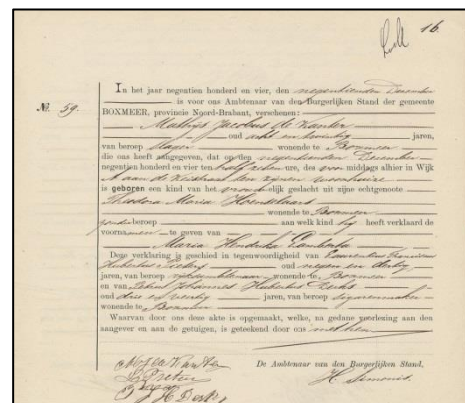 16.
No. 59.
In het jaar negentien honderd en vier, den negentienden December
is voor ons Ambtenaar van den Burgerlijken Stand der gemeente
BOXMEER, provincie Noord-Brabant, verschenen:
Mathijs Jacobus de Kanter
oud acht en twintig jaren,
van beroep slager wonende te Boxmeer
die ons heeft aangegeven, dat op den negentienden December
negentien honderd en vier, ten half ure, des voor middags alhier in Wijk
A aan de ten zijnen woonhuize
is geboren een kind van het vrouwelijk geslacht uit zijne echtgenoote
Theodora Maria
wonende te Boxmeer
zonder beroep aan welk kind hij heeft verklaard de
voornamen te geven van
Maria Hendrika
Deze verklaring is geschied in tegenwoordigheid van
Hubertus oud negen en dertig
jaren, van beroep wonende te Boxmeer
en van Johannes Hubertus
oud drie en veertig jaren, van beroep sigarenmaker
wonende te Boxmeer
Waarvan door ons deze akte is opgemaakt, welke, na gedane voorlezing aan den
aangever en aan de getuigen, is geteekend door ons met hen
De Ambtenaar van den Burgerlijken Stand,
H. Simonis